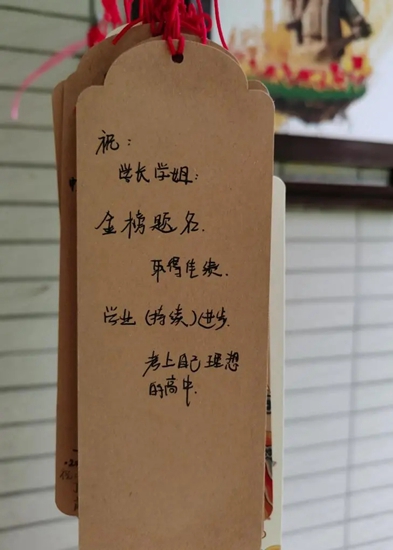 祝：
学长学姐：
金榜题名.
取得佳绩.
学业（持续）进步.
考上自己理想
的高中.